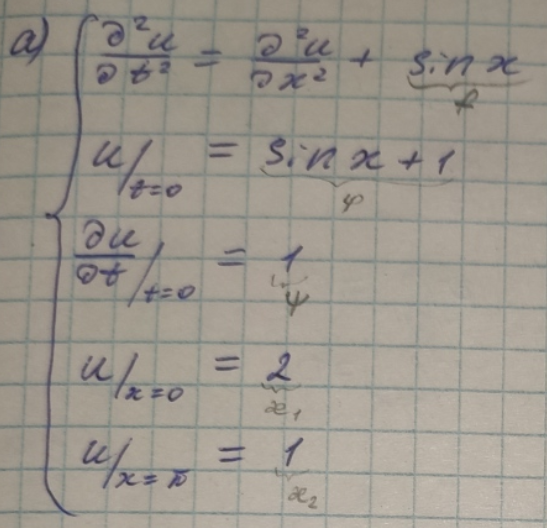 а) ∂²u/∂t² = ∂²u/∂x² + sin x
f
u/t=0 = sin x + 1
φ
∂u/∂t /t=0 = 1
ψ
u/x=0 = 2
æ₁
u/x=π = 1
æ₂